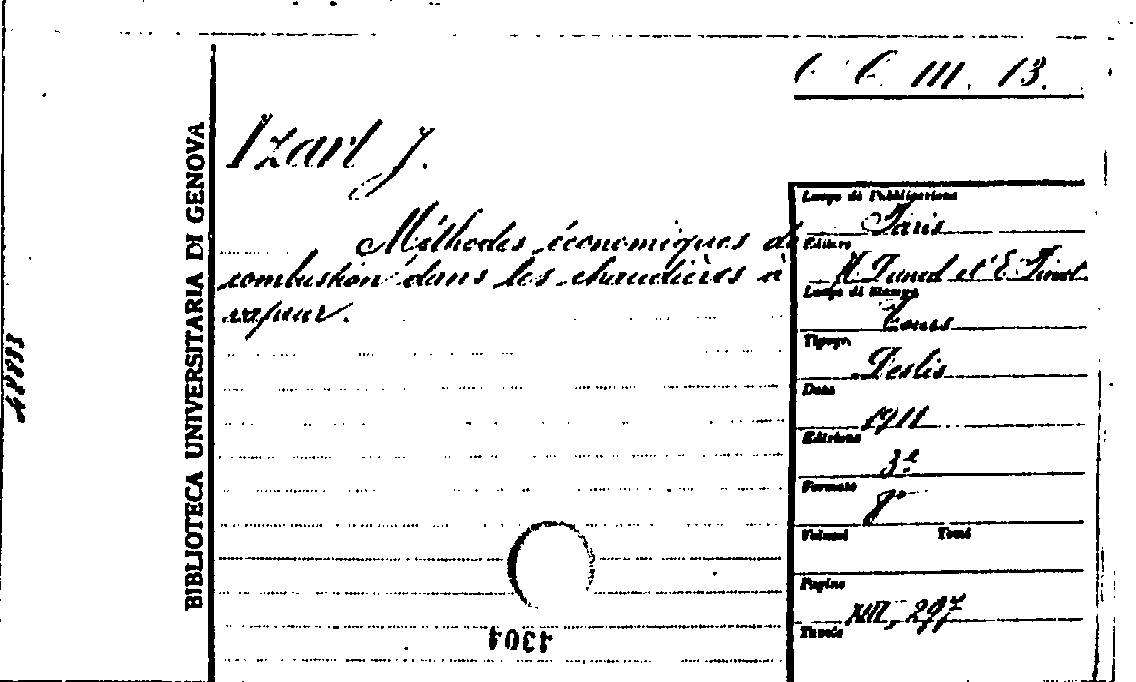 III. 13.
BIBLIOTECA UNIVERSITARIA DI GENOVA
48883
Izart J.
Méthodes économiques de
combustion dans les chaudières à
vapeur.
Luogo di Pubblicazione
Paris
Editore
H. Dunod et E. Pinat
Luogo di Stampa
Tours
Tipogr.
Deslis
Data
1911
Edizione
3e
Formato
8°
Volumi Tomi
Pagine
XVI, 297
Tavole
1304